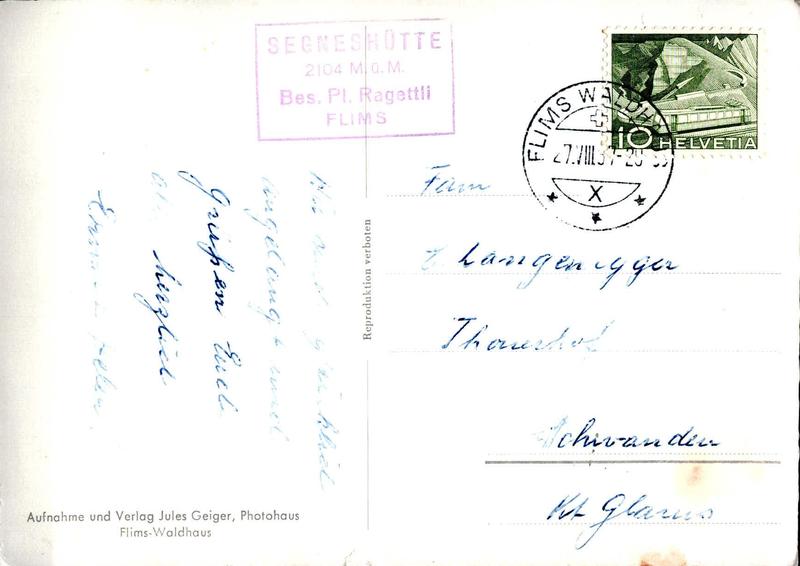 SEGNESHÜTTE
2104 M.ü.M.
Bes. Pl. Ragettli
FLIMS
10 HELVETIA
FLIMS WALDHAUS
27.VIII.5
X
Wir sind glücklich
angelangt und
grüßen Euch
alle herzlich
Reproduktion verboten
Fam
Langenegger
Thonerhof
Schwanden
Kt Glarus
Aufnahme und Verlag Jules Geiger, Photohaus
Flims-Waldhaus